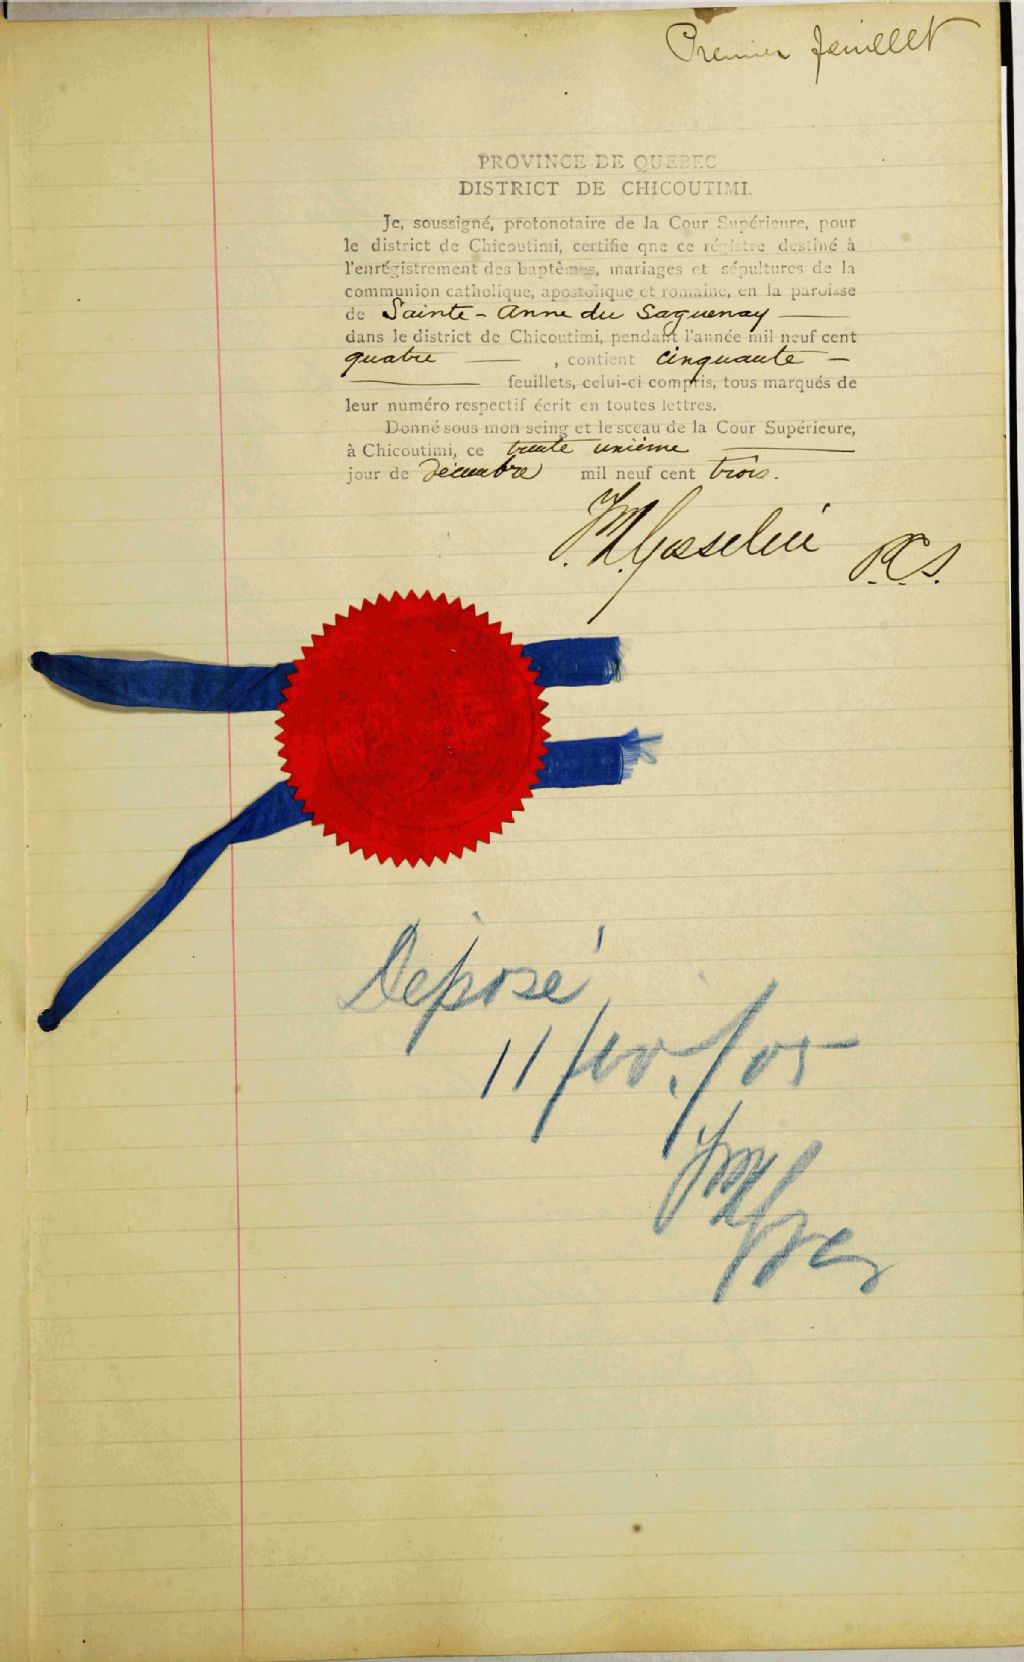 Premier feuillet
PROVINCE DE QUEBEC
DISTRICT DE CHICOUTIMI.
Je, soussigné, protonotaire de la Cour Supérieure, pour
le district de Chicoutimi, certifie qne ce régistre destiné à
l'enrégistrement des baptêmes, mariages et sépultures de la
communion catholique, apostolique et romaine, en la paroisse
de Sainte-Anne du Saguenay
dans le district de Chicoutimi, pendant l'année mil neuf cent
quatre — , contient cinquante —
feuillets, celui-ci compris, tous marqués de
leur numéro respectif écrit en toutes lettres.
Donné sous mon seing et le sceau de la Cour Supérieure,
à Chicoutimi, ce trente unième
jour de décembre mil neuf cent trois.
Gosselin P.C.S.
Déposé
11/ /05